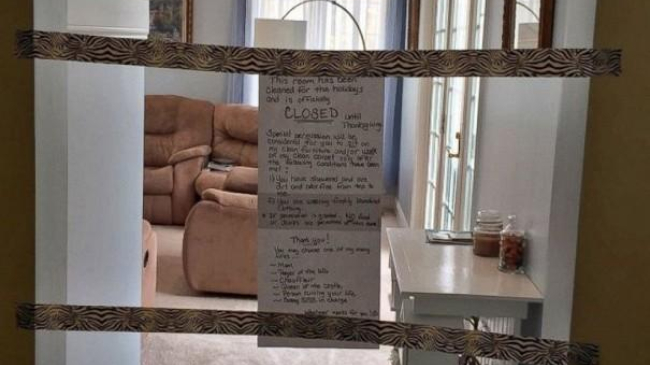 This room has been
cleaned for the holidays
and is officially
CLOSED until
Thanksgiving
Special permission will be
considered for you to sit on
my clean furniture and/or walk
on my clean carpet only after
the following conditions have been
met!
1) You have showered and are
dirt and odor free from head to
2) You are wearing freshly laundered
clothing.
* If permission is granted, NO food
or drinks are permitted
Thank you!
You may choose one of my many
titles
- Mom
- Payer of the bills
- Chauffeur
- Queen of the castle
- Person ruining your life
- Bossy in charge
whatever works for you